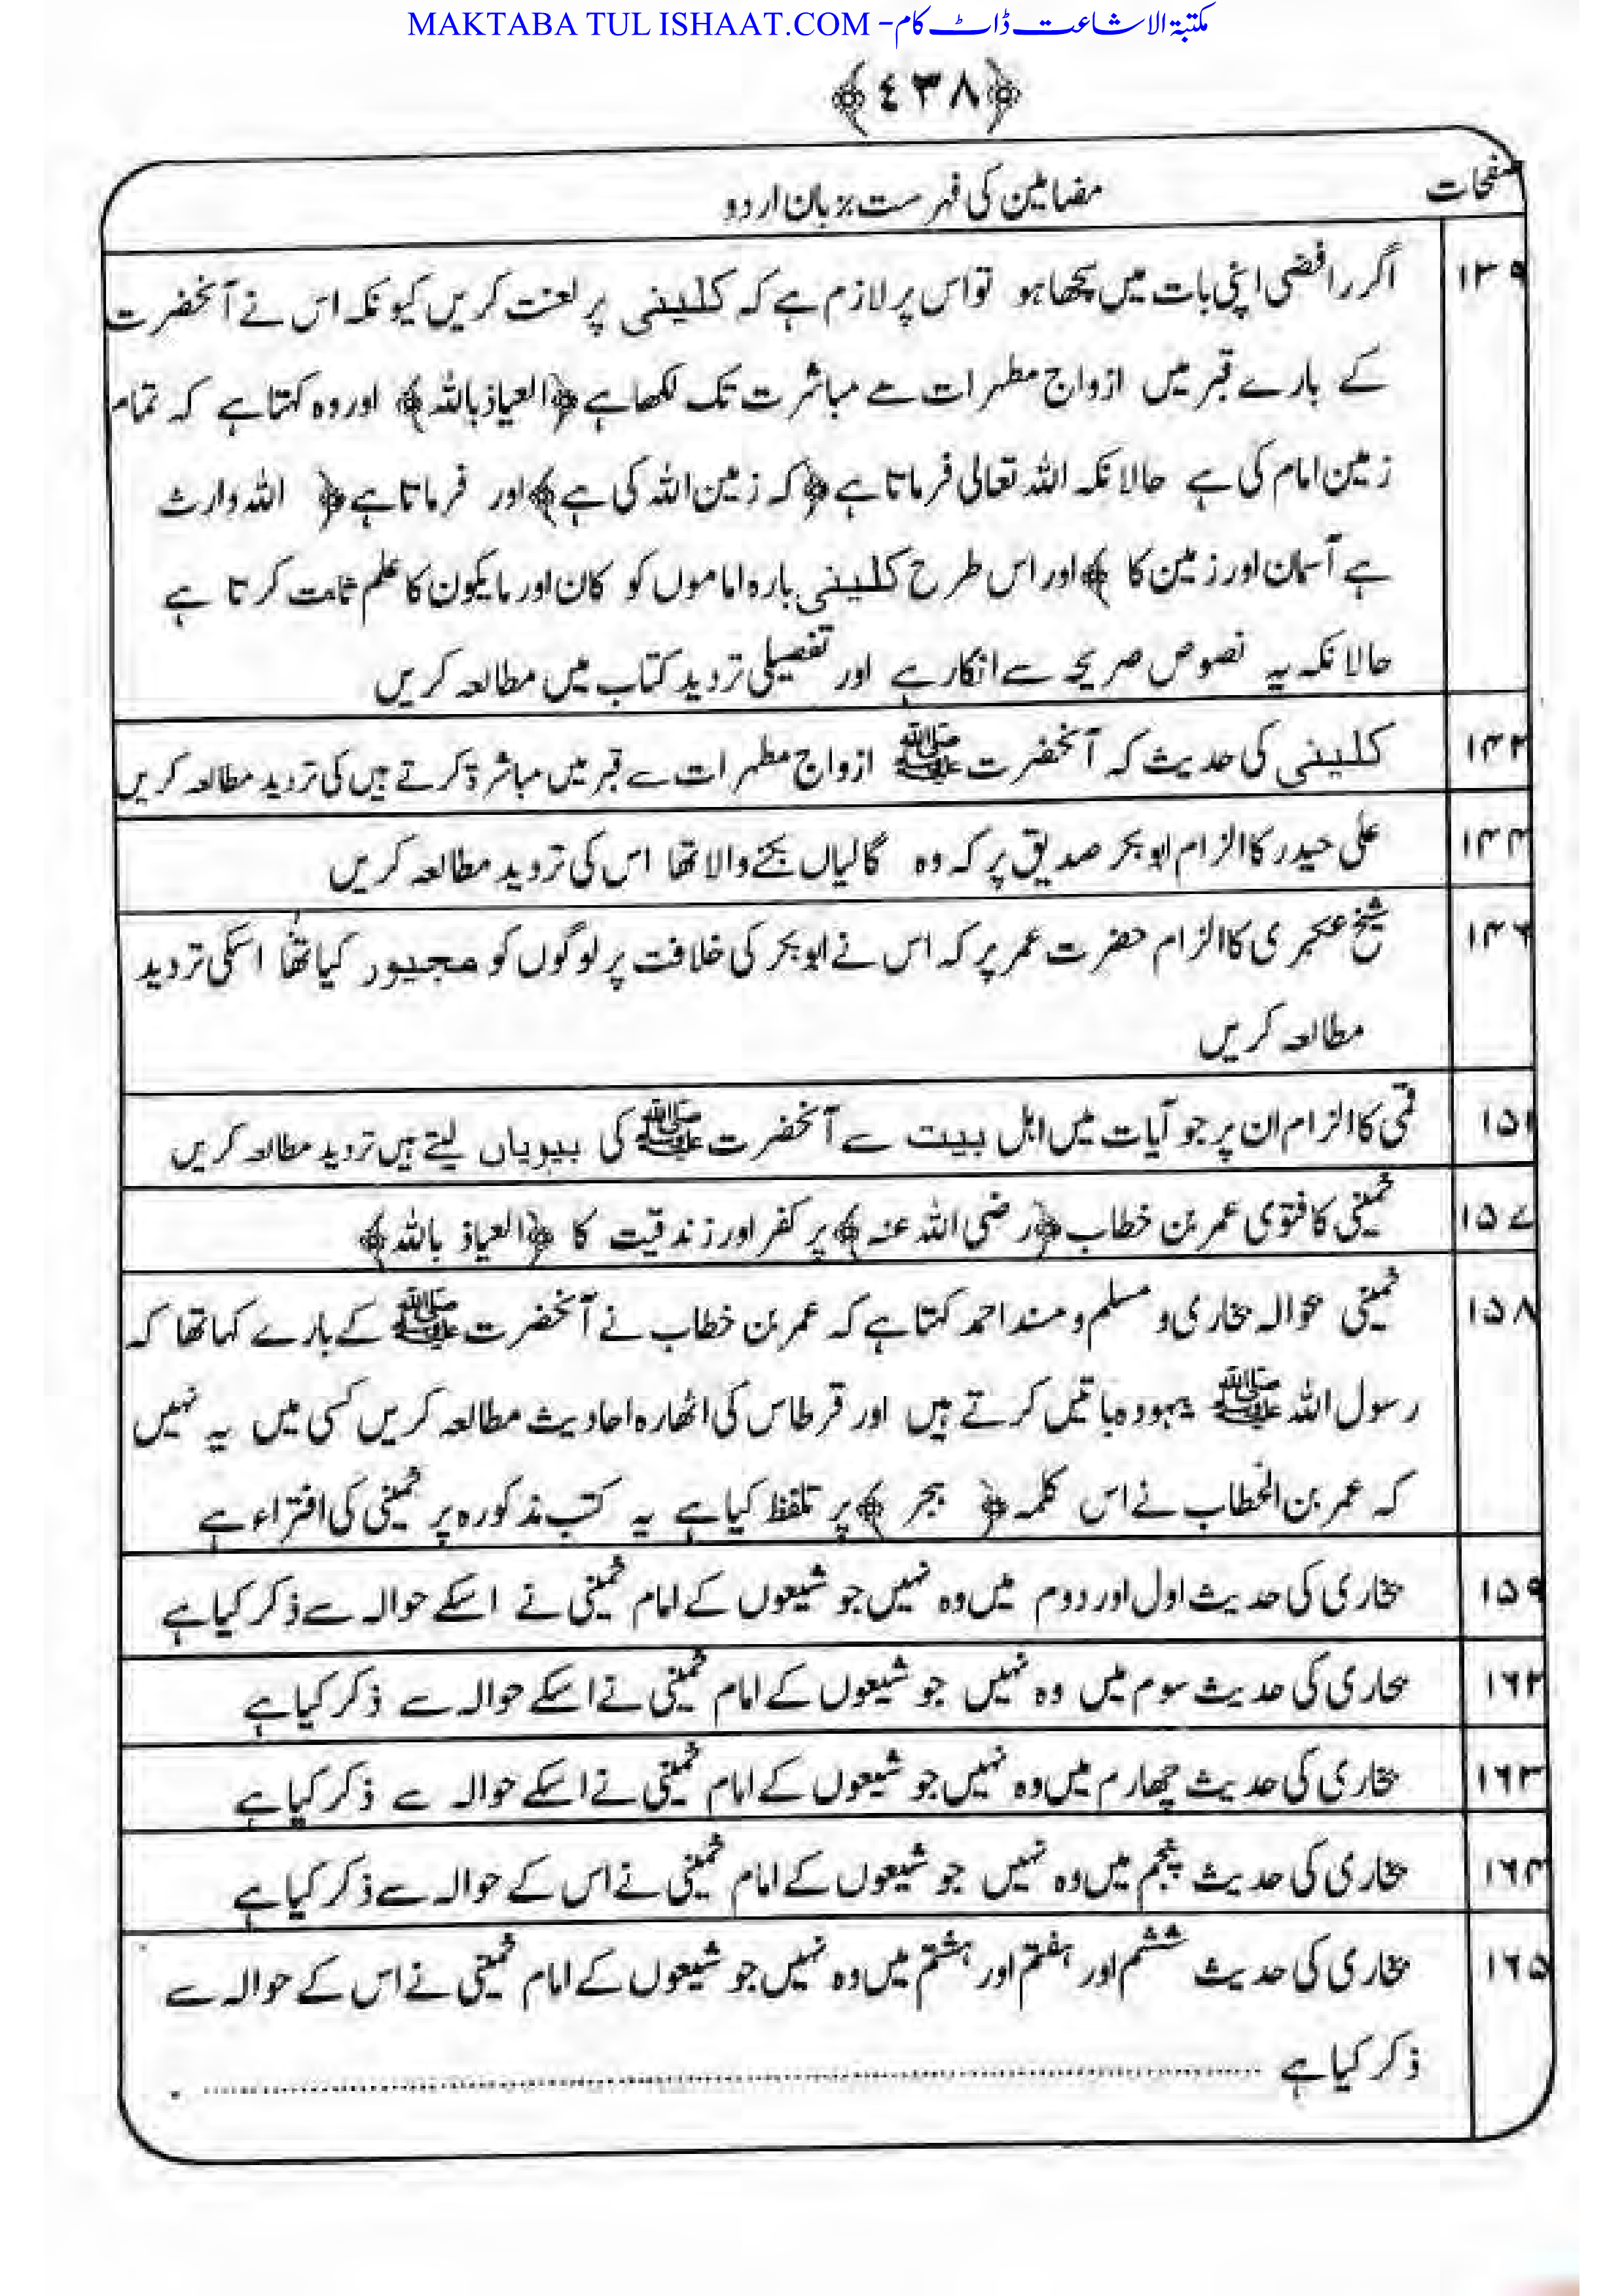 MAKTABA TUL ISHAAT.COM - مکتبۃ الاشاعت ڈاٹ کام
﴿٤٣٨﴾
صفحات مضامین کی فہرست بزبان اردو
۱۳۹ اگر رافضی اپنی بات میں سچھا ہو تو اس پر لازم ہے کہ کلینی پر لعنت کریں کیونکہ اس نے آنحضرت
کے بارے قبر میں ازواج مطہرات سے مباشرت تک لکھا ہے ﴿العیاذ باللہ﴾ اور وہ کہتا ہے کہ تمام
زمین امام کی ہے حالانکہ اللہ تعالی فرماتا ہے ﴿کہ زمین اللہ کی ہے﴾ اور فرماتا ہے ﴿ اللہ وارث
ہے آسمان اور زمین کا ﴾ اور اس طرح کلینی بارہ اماموں کو کان اور مایکون کا علم ثابت کرتا ہے
حالانکہ یہ نصوص صریحہ سے انکار ہے اور تفصیلی تردید کتاب میں مطالعہ کریں
۱۴۲ کلینی کی حدیث کہ آنحضرت ﷺ ازواج مطہرات سے قبر میں مباشرۃ کرتے ہیں کی تردید مطالعہ کریں
۱۴۴ علی حیدر کا الزام ابو بکر صدیق پر کہ وہ گالیاں بکنے والا تھا اس کی تردید مطالعہ کریں
۱۴۶ شیخ عسکری کا الزام حضرت عمر پر کہ اس نے ابو بکر کی خلافت پر لوگوں کو مجبور کیا تھا اسکی تردید
مطالعہ کریں
۱۵۱ قمی کا الزام ان پر جو آیات میں اہل بیت سے آنحضرت ﷺ کی بیویاں لیتے ہیں تردید مطالعہ کریں
۱۵۷ خمینی کا فتوی عمر بن خطاب ﴿رضی اللہ عنہ﴾ پر کفر اور زندقیت کا ﴿العیاذ باللہ﴾
۱۵۸ خمینی بحوالہ بخاری و مسلم و مسند احمد کہتا ہے کہ عمر بن خطاب نے آنحضرت ﷺ کے بارے کہا تھا کہ
رسول اللہ ﷺ بیہودہ باتیں کرتے ہیں اور قرطاس کی اٹھارہ احادیث مطالعہ کریں کسی میں یہ نہیں
کہ عمر بن الخطاب نے اس کلمہ ﴿ ہجر ﴾ پر تلفظ کیا ہے یہ کتب مذکورہ پر خمینی کی افتراء ہے
۱۵۹ بخاری کی حدیث اول اور دوم میں وہ نہیں جو شیعوں کے امام خمینی نے اسکے حوالہ سے ذکر کیا ہے
۱۶۲ بخاری کی حدیث سوم میں وہ نہیں جو شیعوں کے امام خمینی نے اسکے حوالہ سے ذکر کیا ہے
۱۶۳ بخاری کی حدیث چھارم میں وہ نہیں جو شیعوں کے امام خمینی نے اسکے حوالہ سے ذکر کیا ہے
۱۶۴ بخاری کی حدیث پنجم میں وہ نہیں جو شیعوں کے امام خمینی نے اس کے حوالہ سے ذکر کیا ہے
۱۶۵ بخاری کی حدیث ششم اور ہفتم اور ہشتم میں وہ نہیں جو شیعوں کے امام خمینی نے اس کے حوالہ سے
ذکر کیا ہے